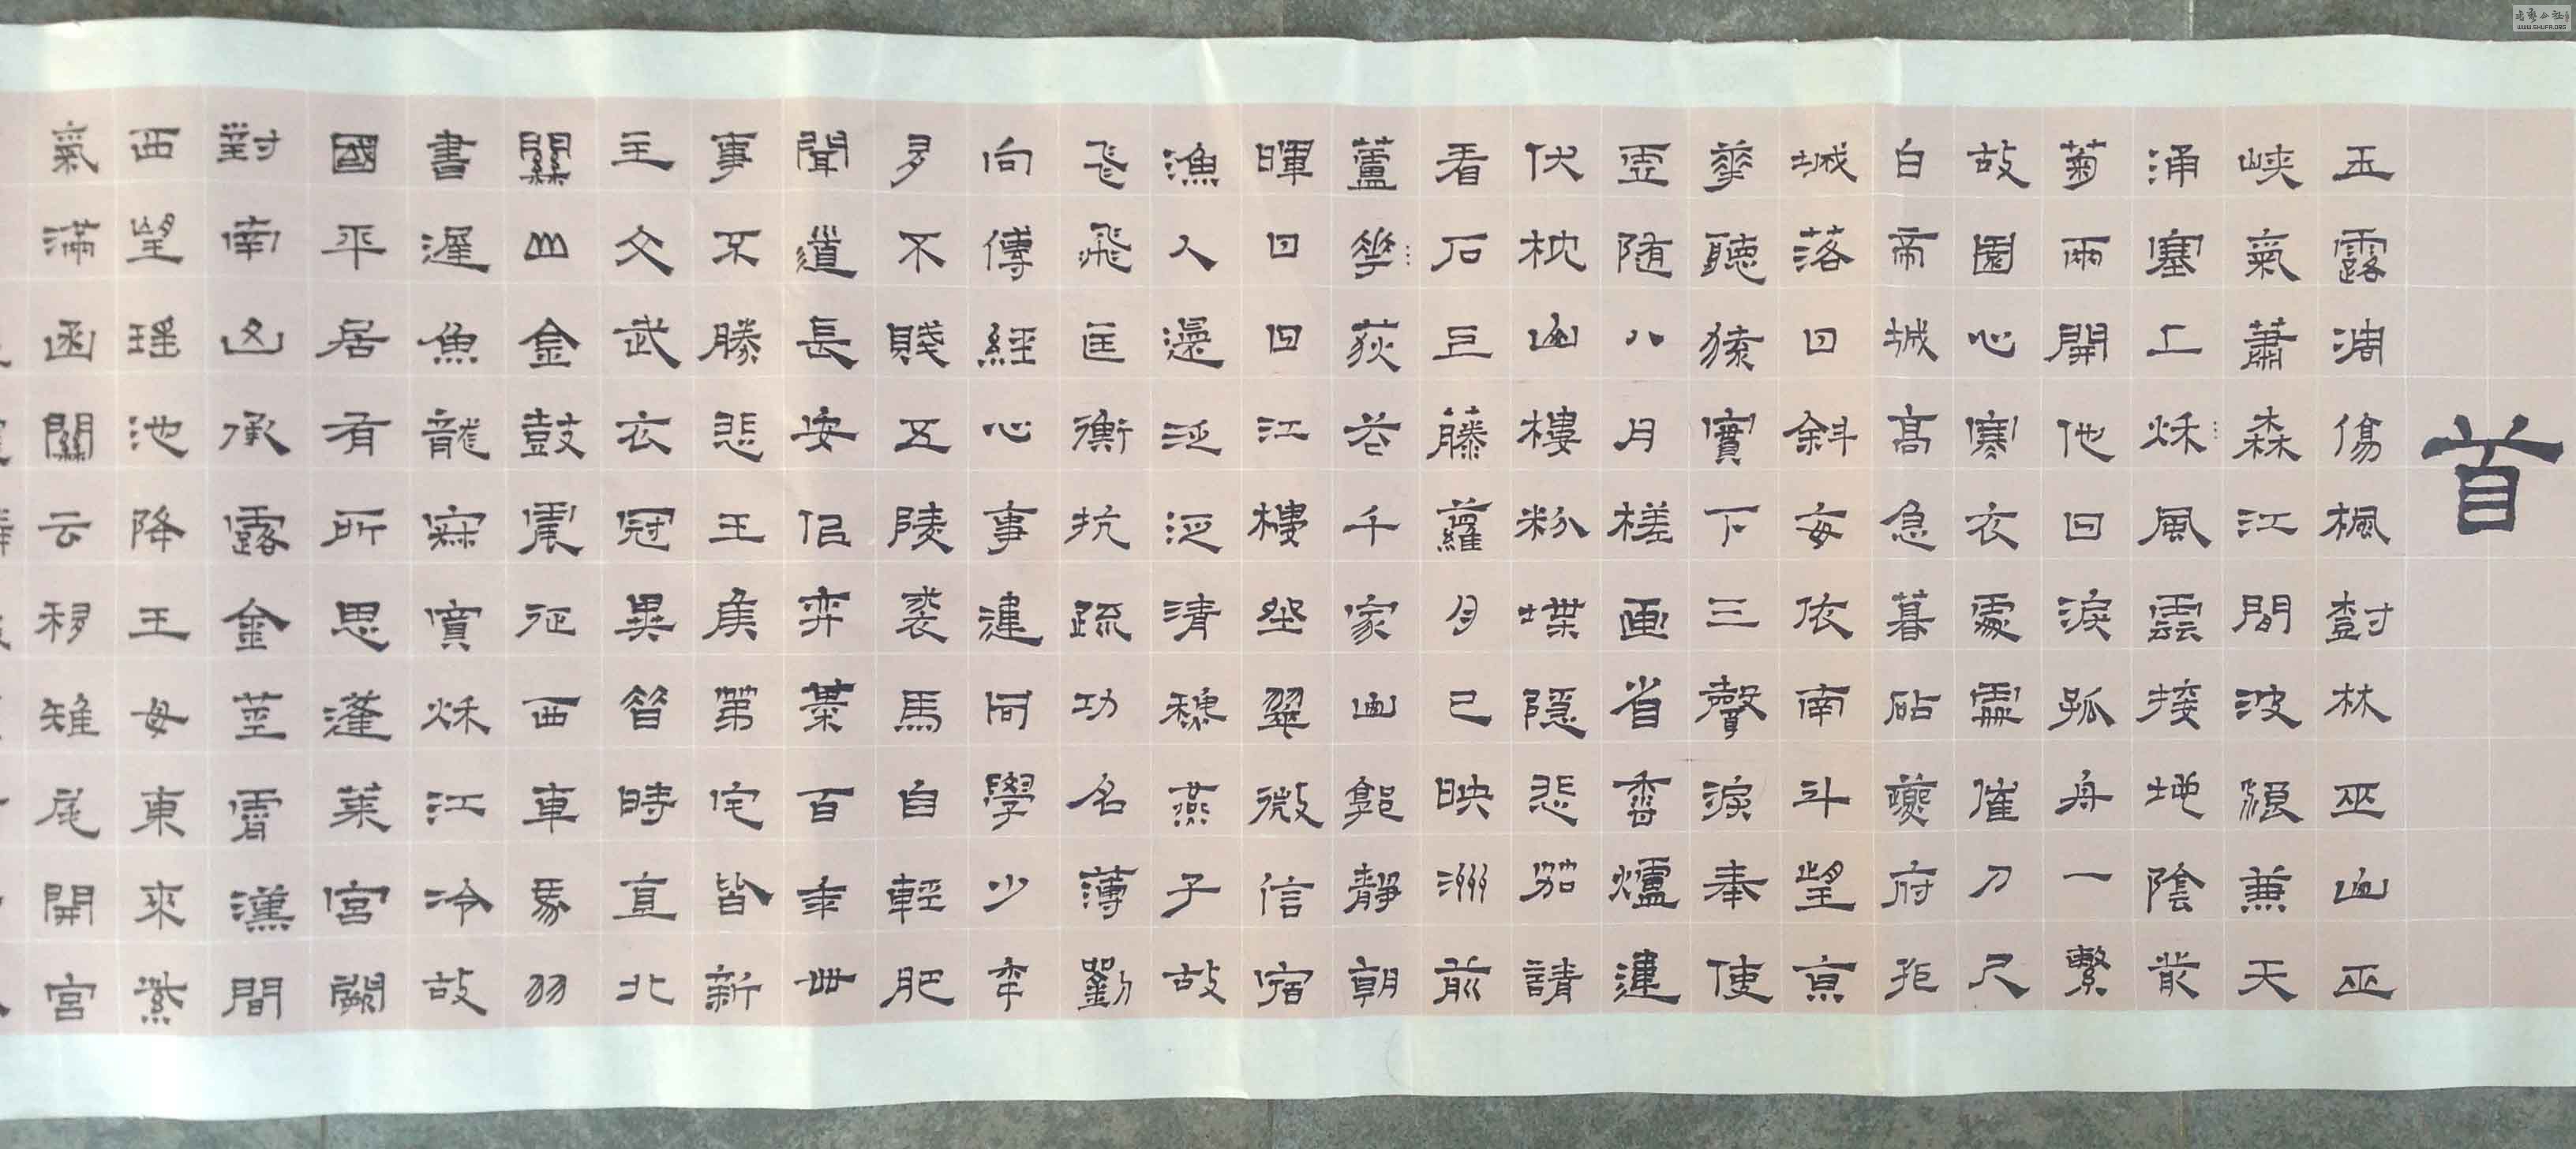 首
玉露凋傷楓樹林巫山巫
峽氣蕭森江間波浪兼天
涌塞上秋風雲接地陰叢
菊兩開他日淚孤舟一繫
故園心寒衣處處催刀尺
白帝城高急暮砧夔府孤
城落日斜每依南斗望京
華聽猿實下三聲淚奉使
虛隨八月槎画省香爐違
伏枕山樓粉堞隱悲笳請
看石上藤蘿月已映洲前
蘆花荻花千家山郭靜朝
暉日日江樓坐翠微信宿
漁人還泛泛清穐燕子故
飛飛匡衡抗疏功名薄劉
向傳經心事違同學少年
多不賤五陵裘馬自輕肥
聞道長安佀弈棊百年世
事不勝悲王侯第宅皆新
主文武衣冠異昔時直北
關山金鼓震征西車馬羽
書遲魚龍寂寞秋江冷故
國平居有所思蓬萊宮闕
對南山承露金莖霄漢間
西望瑤池降王母東來紫
氣滿函關云移雉尾開宮
WWW.SHUFA.ORG